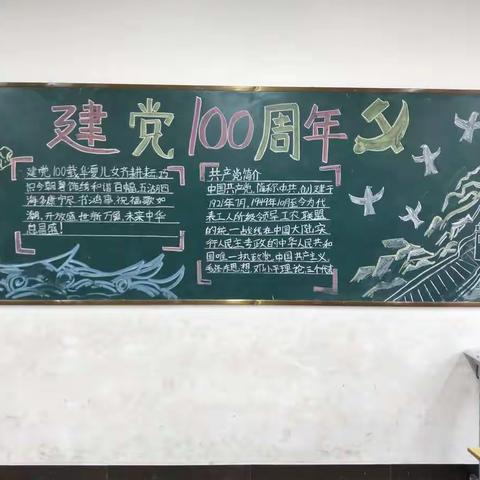 建党100周年
建党100载,华夏儿女齐耕耘,巧
阳今朝着饰绣和谐百幅,五湖四
海多康宁尽书鸿事,祝福歌如
潮,开放盛世新万象,未来中华
总昌盛!
共产党简介
中国共产党,简称中共,创建于
1921年7月,1949年10月至今为代
表工人阶级领导工农联盟
的统一战线在中国大陆实
行人民主专政的中华人民共和
国唯一执政党,中国共产主义
毛泽东思想邓小平理论,三个代表